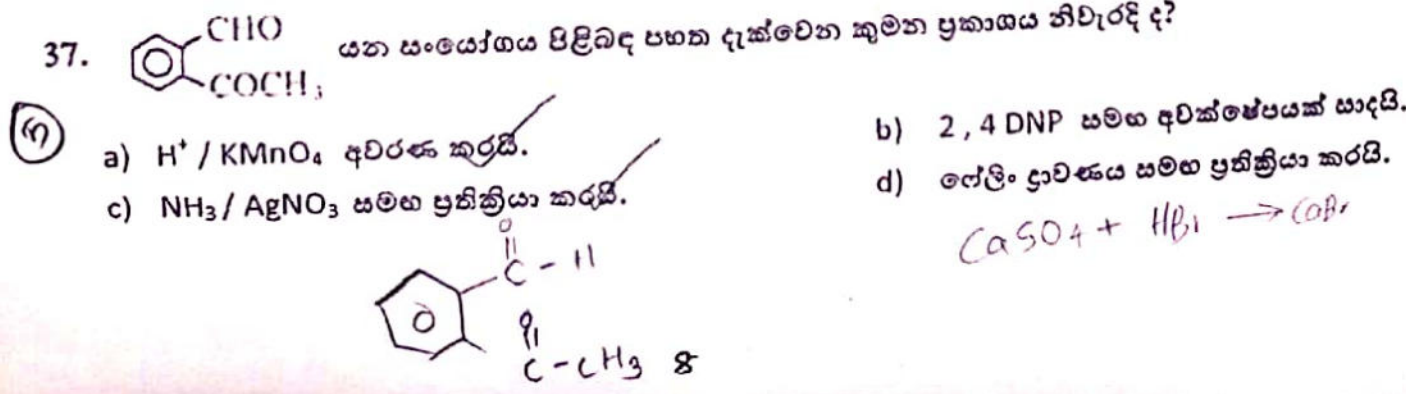 37. CHO COCH₃ යන සංයෝගය පිළිබඳ පහත දැක්වෙන කුමන ප්‍රකාශය නිවැරදි ද?
a) H⁺ / KMnO₄ අවරණ කරයි.
b) 2 , 4 DNP සමඟ අවක්ෂේපයක් සාදයි.
c) NH₃ / AgNO₃ සමඟ ප්‍රතික්‍රියා කරයි.
d) ෆේලිං ද්‍රාවණය සමඟ ප්‍රතික්‍රියා කරයි.
CaSO₄ + HBr → CaBr
O
C - H
O
C - CH₃ 8